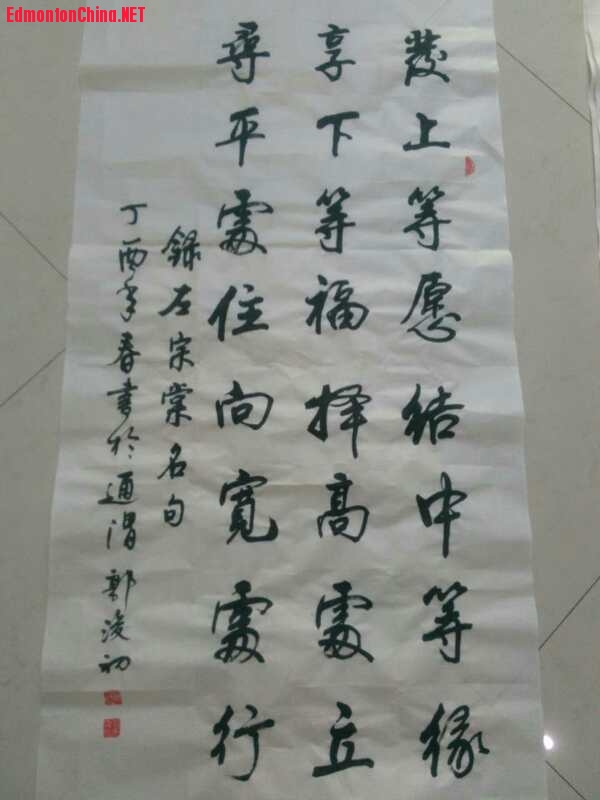 EdmontonChina.NET
發上等愿結中等緣
享下等福擇高處立
尋平處住向寬處行
錄左宗棠名句
丁酉年春書於通渭 郭浚初